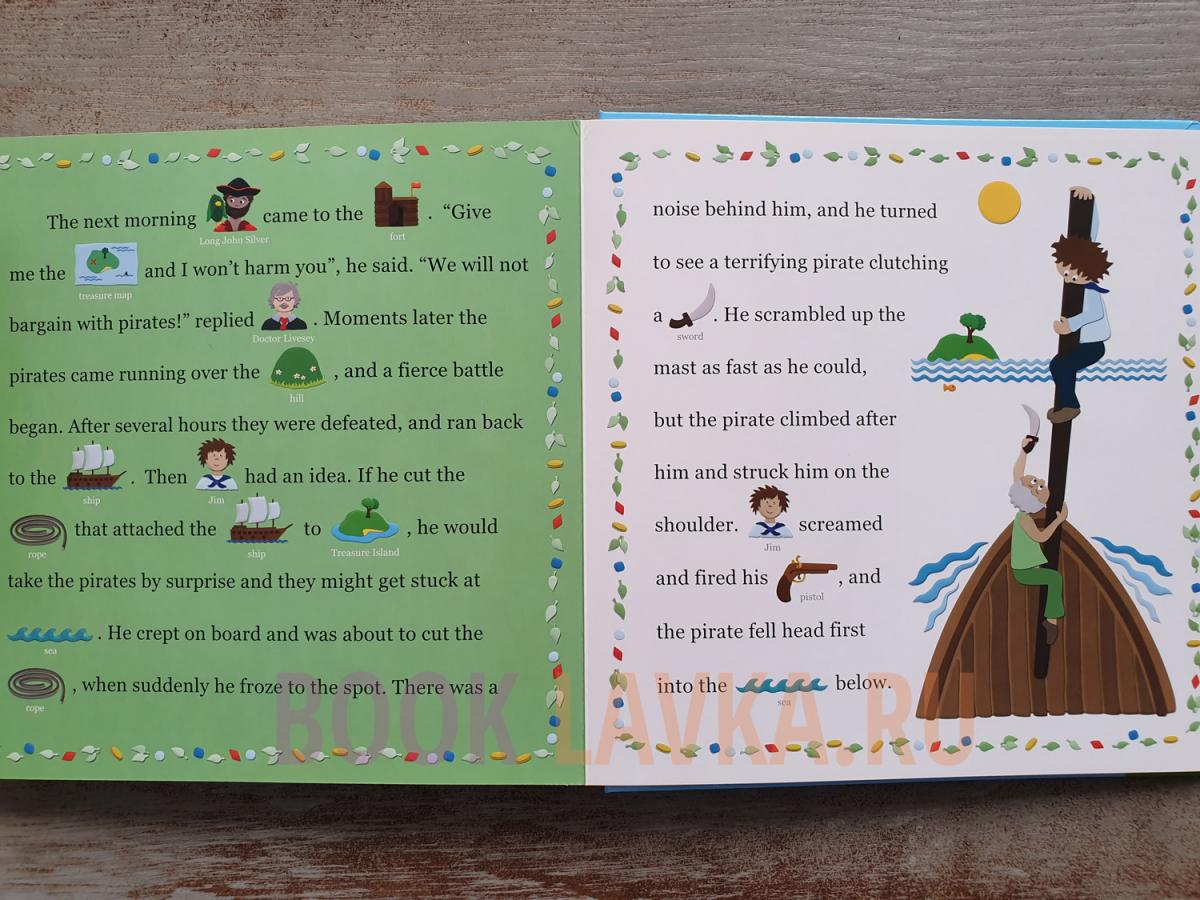 The next morning came to the . “Give
Long John Silver fort
me the and I won’t harm you”, he said. “We will not
treasure map
bargain with pirates!” replied . Moments later the
Doctor Livesey
pirates came running over the , and a fierce battle
hill
began. After several hours they were defeated, and ran back
to the . Then had an idea. If he cut the
ship Jim
that attached the to , he would
rope ship Treasure Island
take the pirates by surprise and they might get stuck at
. He crept on board and was about to cut the
sea
, when suddenly he froze to the spot. There was a
rope
noise behind him, and he turned
to see a terrifying pirate clutching
a . He scrambled up the
sword
mast as fast as he could,
but the pirate climbed after
him and struck him on the
shoulder. screamed
Jim
and fired his , and
pistol
the pirate fell head first
into the below.
sea
BOOK LAVKA.RU